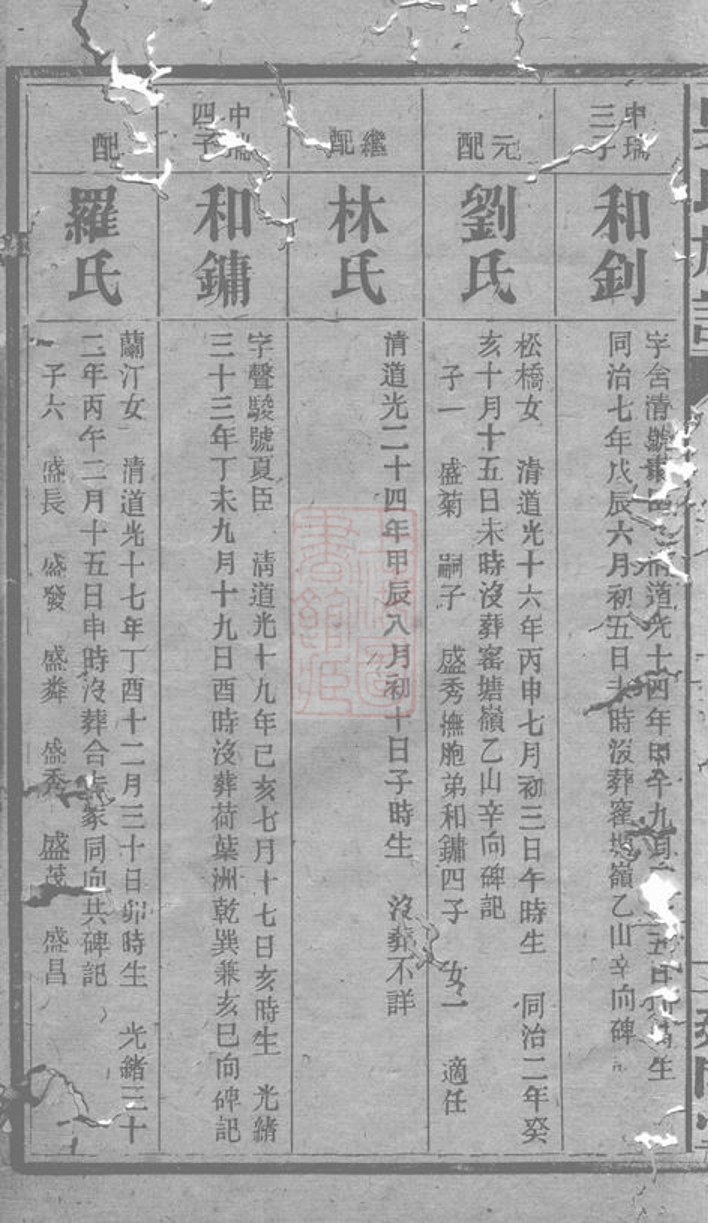 氏族譜
中瑞三子
和釗
字含清號
清道光十四年甲午九月 五日 時生
同治七年戊辰六月初五日 時沒葬窰塘嶺乙山辛向碑
元配
劉氏
松橋女 清道光十六年丙申七月初三日午時生 同治二年癸
亥十月十五日未時沒葬窰塘嶺乙山辛向碑記
子一 盛菊 嗣子 盛秀撫胞弟和鏞四子 女二 適任
繼配
林氏
清道光二十四年甲辰八月初十日子時生 沒葬不詳
中瑞四子
和鏞
字聲駿號夏臣 清道光十九年己亥七月十七日亥時生 光緒
三十三年丁未九月十九日酉時沒葬荷葉洲乾巽兼亥巳向碑記
配
羅氏
蘭汀女 清道光十七年丁酉十二月三十日卯時生 光緒三十
二年丙午二月十五日申時沒葬合 冢同向共碑記
子六 盛長 盛發 盛粦 盛秀 盛茂 盛昌